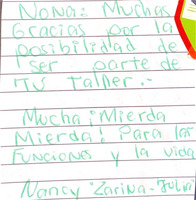 Nona: Muchas
Gracias por la
posibilidad de
ser parte de
TU Taller.-
Mucha ¡Mierda
Mierda! Para las
Funciones y la vida
Nancy Zarina-